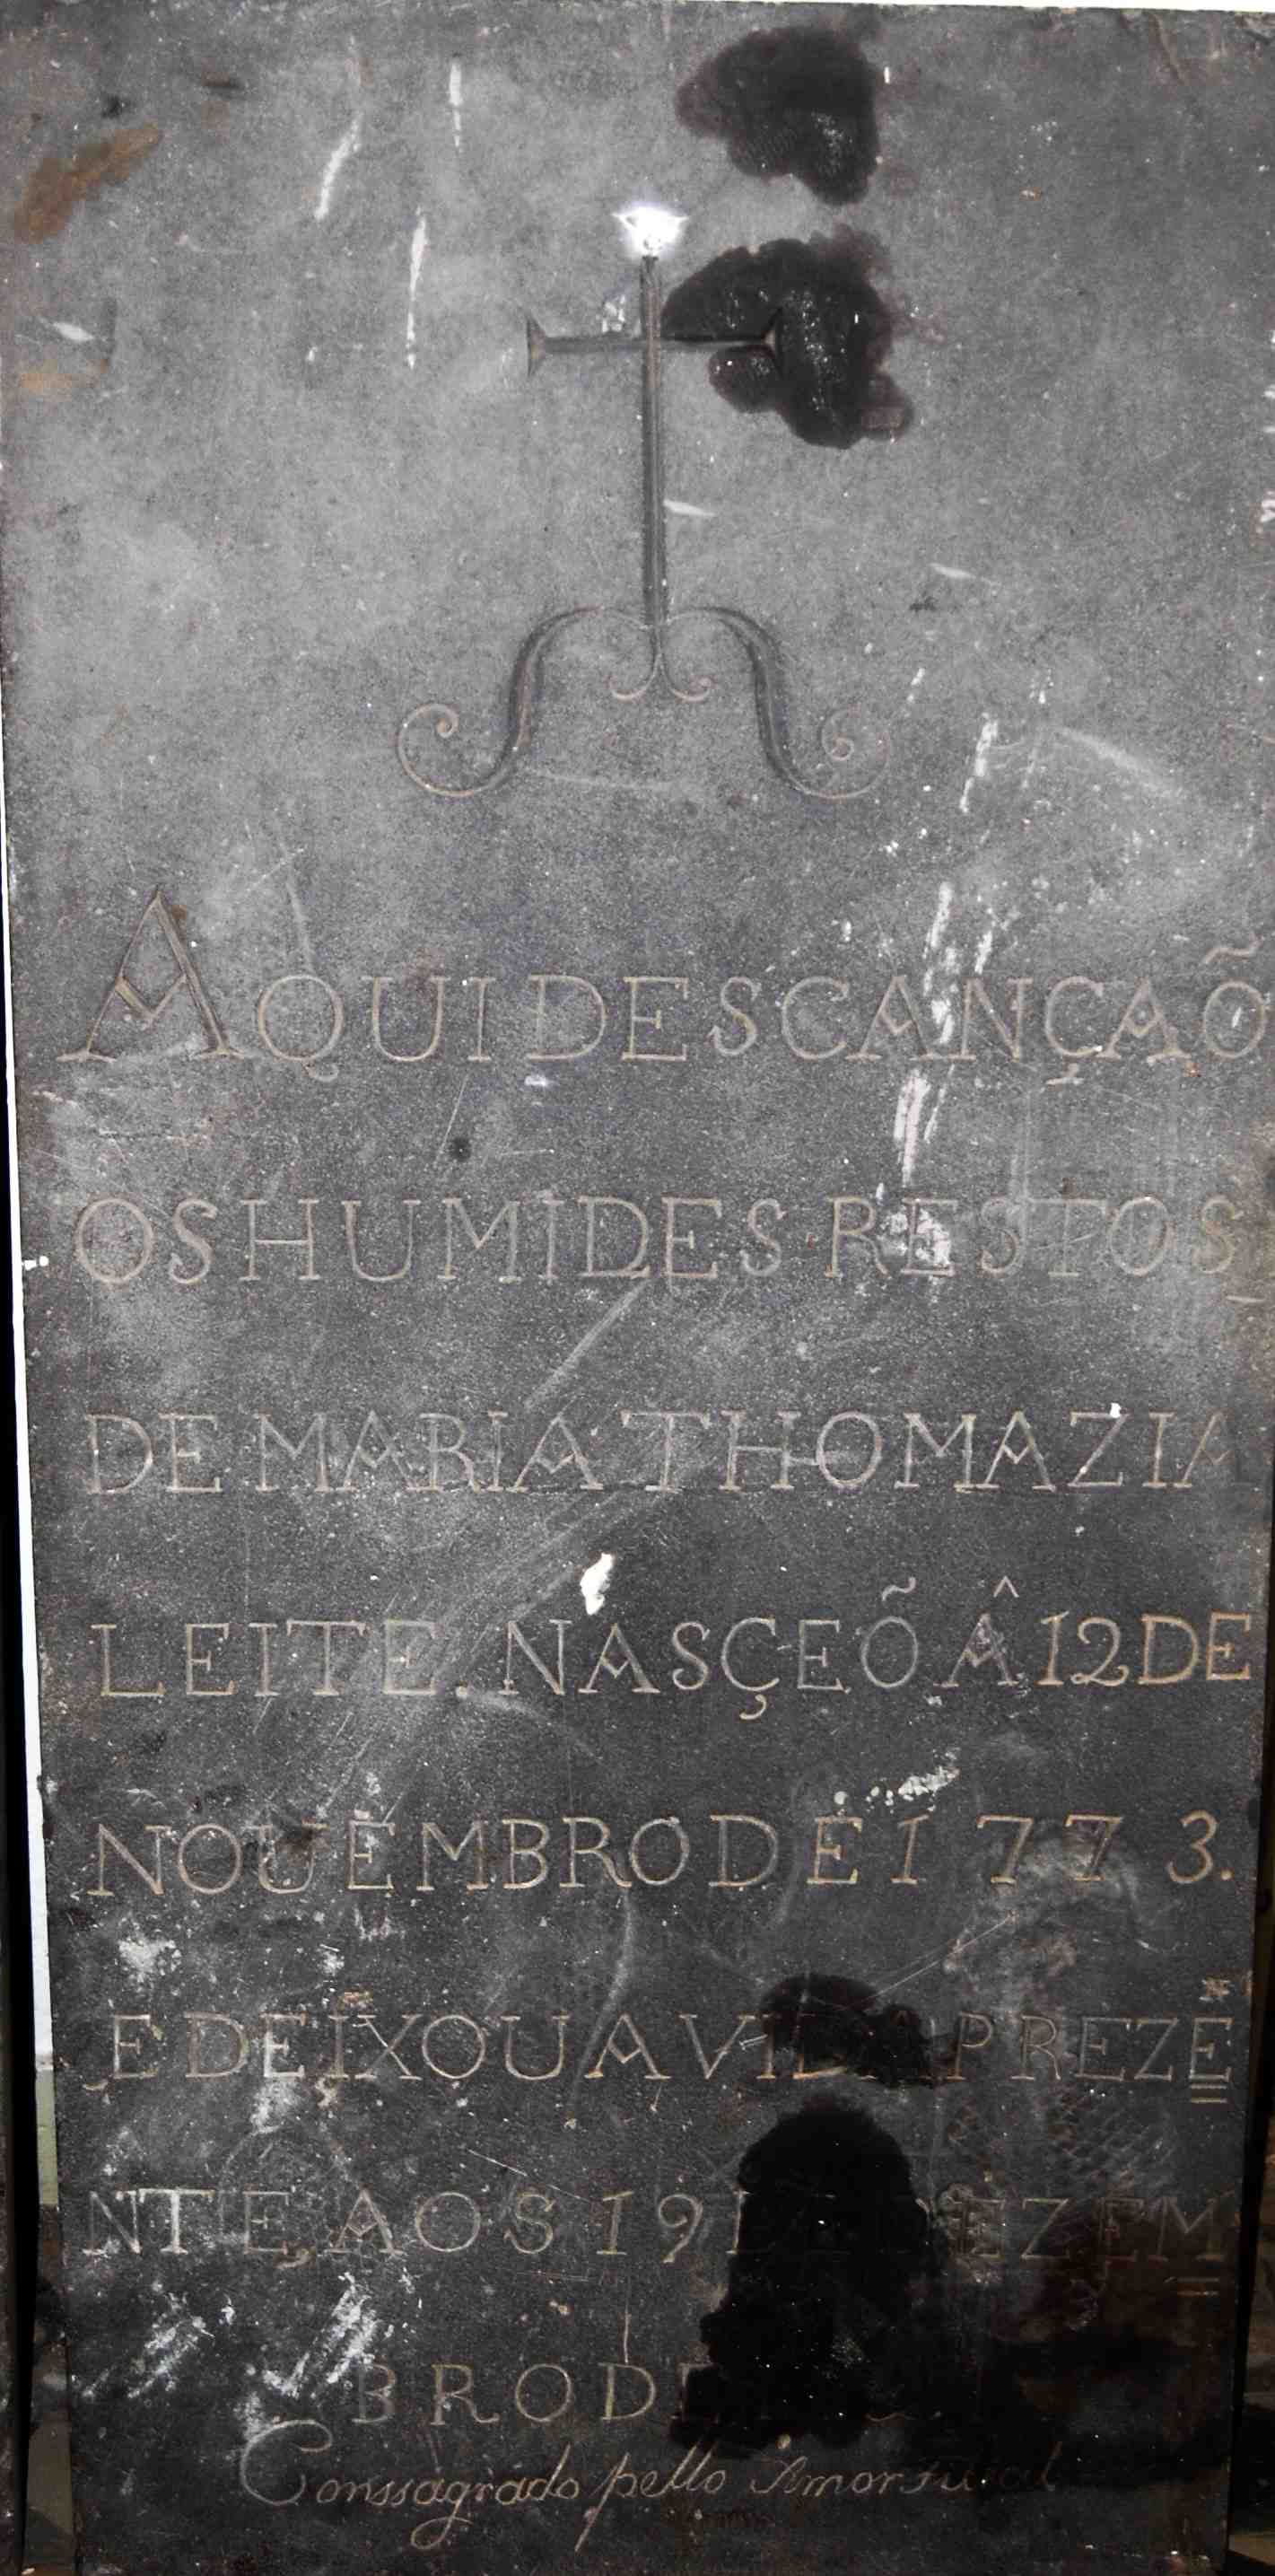 AQUI DESCANÇAÕ
OS HUMIDES RESTOS
DE MARIA THOMAZIA
LEITE. NASÇEÕ Â 12 DE
NOUEMBRO DE 1773.
E DEIXOU A VIDA PREZE
NTE AOS 19 DE DEZEM
BRO DE
Conssagrado pello Amor Filial